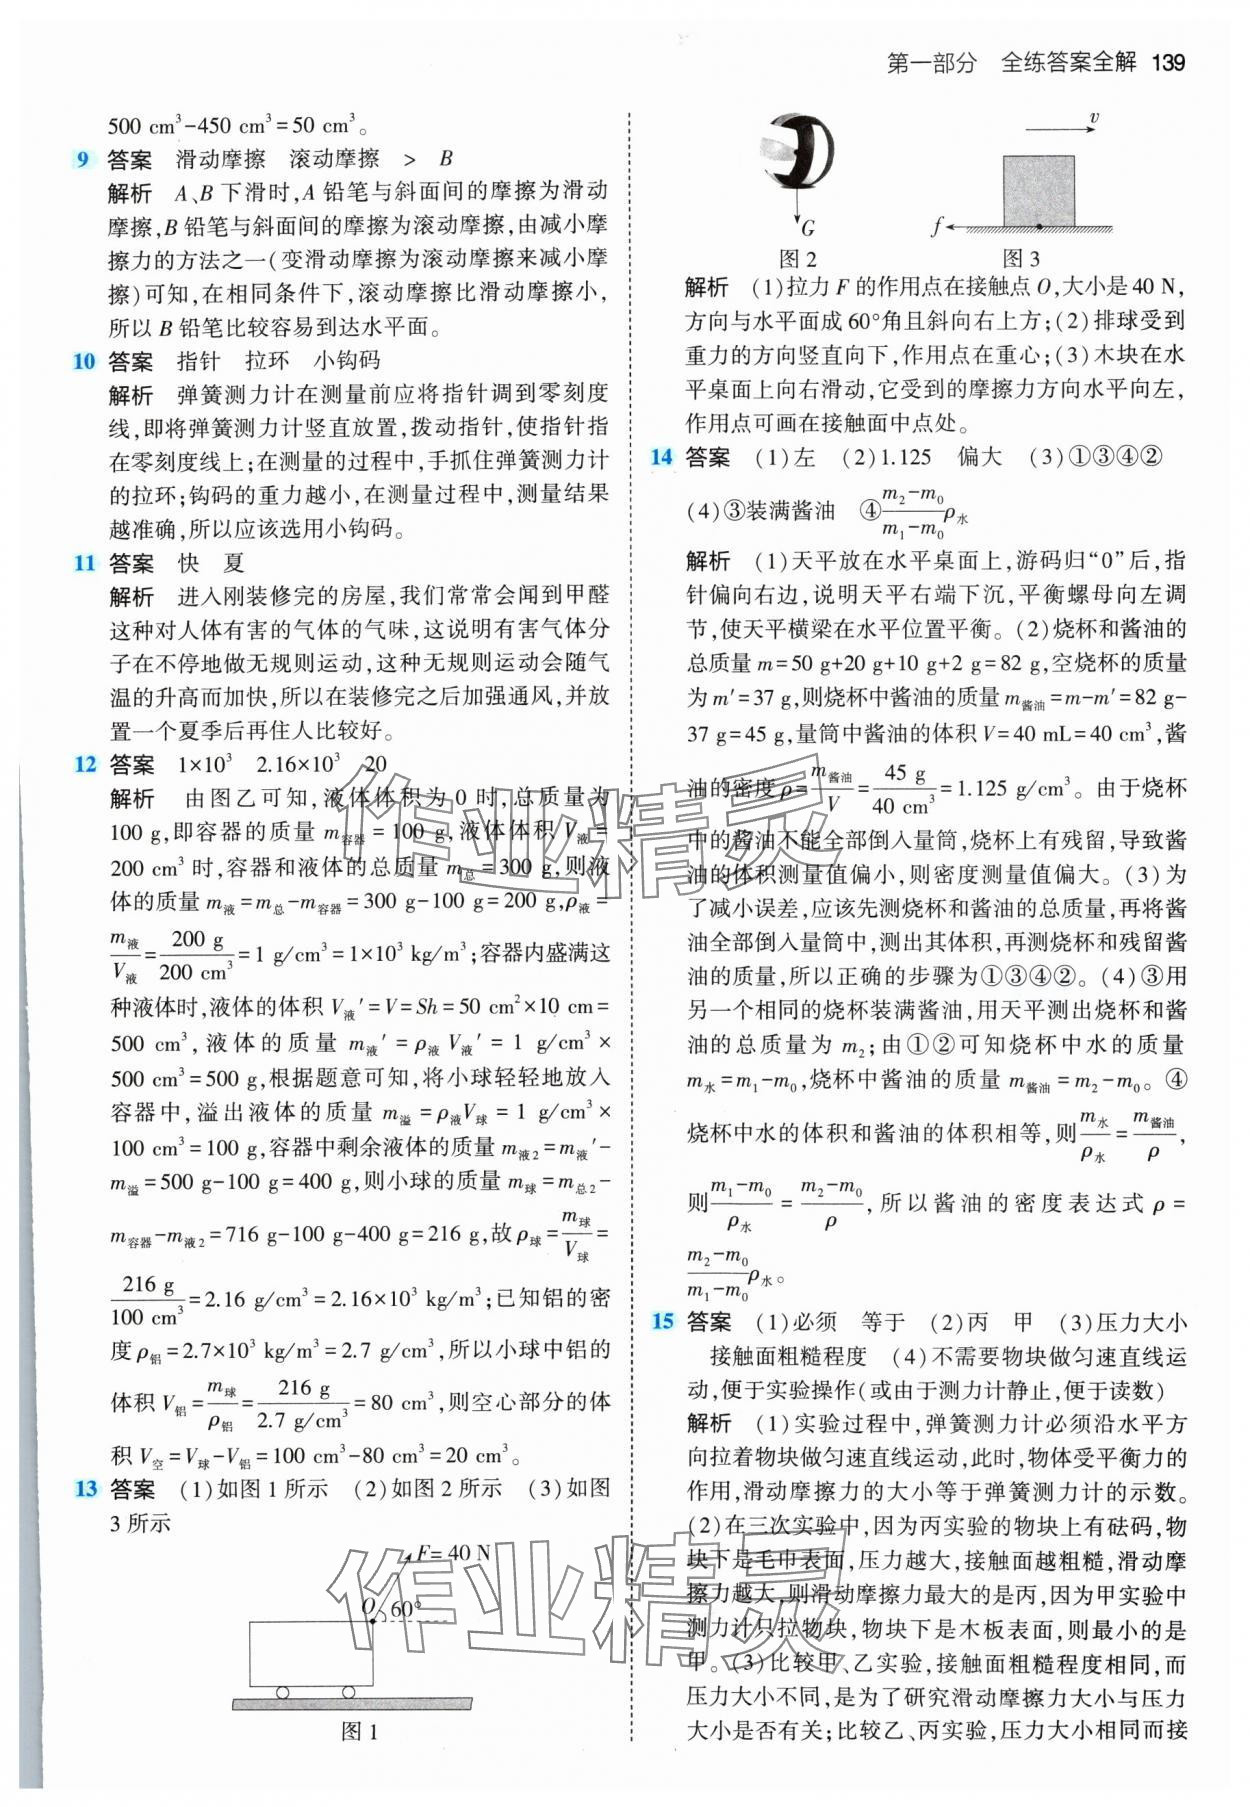 第一部分 全练答案全解 139
500 cm³-450 cm³=50 cm³。
9 答案 滑动摩擦 滚动摩擦 > B
解析 A、B 下滑时,A 铅笔与斜面间的摩擦为滑动
摩擦,B 铅笔与斜面间的摩擦为滚动摩擦,由减小摩
擦力的方法之一(变滑动摩擦为滚动摩擦来减小摩
擦)可知,在相同条件下,滚动摩擦比滑动摩擦小,
所以 B 铅笔比较容易到达水平面。
10 答案 指针 拉环 小钩码
解析 弹簧测力计在测量前应将指针调到零刻度
线,即将弹簧测力计竖直放置,拨动指针,使指针指
在零刻度线上;在测量的过程中,手抓住弹簧测力计
的拉环;钩码的重力越小,在测量过程中,测量结果
越准确,所以应该选用小钩码。
11 答案 快 夏
解析 进入刚装修完的房屋,我们常常会闻到甲醛
这种对人体有害的气体的气味,这说明有害气体分
子在不停地做无规则运动,这种无规则运动会随气
温的升高而加快,所以在装修完之后加强通风,并放
置一个夏季后再住人比较好。
12 答案 1×10³ 2.16×10³ 20
解析 由图乙可知,液体体积为 0 时,总质量为
100 g,即容器的质量 m容器=100 g,液体体积 V液=
200 cm³ 时,容器和液体的总质量 m总=300 g,则液
体的质量 m液=m总-m容器=300 g-100 g=200 g,ρ液=
m液/V液=200 g/200 cm³=1 g/cm³=1×10³ kg/m³;容器内盛满这
种液体时,液体的体积 V液′=V=Sh=50 cm²×10 cm=
500 cm³,液体的质量 m液′=ρ液V液′=1 g/cm³×
500 cm³=500 g,根据题意可知,将小球轻轻地放入
容器中,溢出液体的质量 m溢=ρ液V球=1 g/cm³×
100 cm³=100 g,容器中剩余液体的质量 m液2=m液′-
m溢=500 g-100 g=400 g,则小球的质量 m球=m总2-
m容器-m液2=716 g-100 g-400 g=216 g,故 ρ球=m球/V球=
216 g/100 cm³=2.16 g/cm³=2.16×10³ kg/m³;已知铝的密
度 ρ铝=2.7×10³ kg/m³=2.7 g/cm³,所以小球中铝的
体积 V铝=m球/ρ铝=216 g/2.7 g/cm³=80 cm³,则空心部分的体
积 V空=V球-V铝=100 cm³-80 cm³=20 cm³。
13 答案 (1)如图 1 所示 (2)如图 2 所示 (3)如图
3 所示
F=40 N
O 60°
图 1
v
G
f
图 2
图 3
解析 (1)拉力 F 的作用点在接触点 O,大小是 40 N,
方向与水平面成 60°角且斜向右上方;(2)排球受到
重力的方向竖直向下,作用点在重心;(3)木块在水
平桌面上向右滑动,它受到的摩擦力方向水平向左,
作用点可画在接触面中点处。
14 答案 (1)左 (2)1.125 偏大 (3)①③④②
(4)③装满酱油 ④(m₂-m₀)/(m₁-m₀)ρ水
解析 (1)天平放在水平桌面上,游码归“0”后,指
针偏向右边,说明天平右端下沉,平衡螺母向左调
节,使天平横梁在水平位置平衡。(2)烧杯和酱油的
总质量 m=50 g+20 g+10 g+2 g=82 g,空烧杯的质量
为 m′=37 g,则烧杯中酱油的质量 m酱油=m-m′=82 g-
37 g=45 g,量筒中酱油的体积 V=40 mL=40 cm³,酱
油的密度 ρ=m酱油/V=45 g/40 cm³=1.125 g/cm³。由于烧杯
中的酱油不能全部倒入量筒,烧杯上有残留,导致酱
油的体积测量值偏小,则密度测量值偏大。(3)为
了减小误差,应该先测烧杯和酱油的总质量,再将酱
油全部倒入量筒中,测出其体积,再测烧杯和残留酱
油的质量,所以正确的步骤为①③④②。(4)③用
另一个相同的烧杯装满酱油,用天平测出烧杯和酱
油的总质量为 m₂;由①②可知烧杯中水的质量
m水=m₁-m₀,烧杯中酱油的质量 m酱油=m₂-m₀。④
烧杯中水的体积和酱油的体积相等,则m水/ρ水=m酱油/ρ,
则(m₁-m₀)/ρ水=(m₂-m₀)/ρ,所以酱油的密度表达式 ρ=
(m₂-m₀)/(m₁-m₀)ρ水。
15 答案 (1)必须 等于 (2)丙 甲 (3)压力大小
接触面粗糙程度 (4)不需要物块做匀速直线运
动,便于实验操作(或由于测力计静止,便于读数)
解析 (1)实验过程中,弹簧测力计必须沿水平方
向拉着物块做匀速直线运动,此时,物体受平衡力的
作用,滑动摩擦力的大小等于弹簧测力计的示数。
(2)在三次实验中,因为丙实验的物块上有砝码,物
块下是毛巾表面,压力越大,接触面越粗糙,滑动摩
擦力越大,则滑动摩擦力最大的是丙,因为甲实验中
测力计只拉物块,物块下是木板表面,则最小的是
甲。(3)比较甲、乙实验,接触面粗糙程度相同,而
压力大小不同,是为了研究滑动摩擦力大小与压力
大小是否有关;比较乙、丙实验,压力大小相同而接
作业精灵
作业精灵